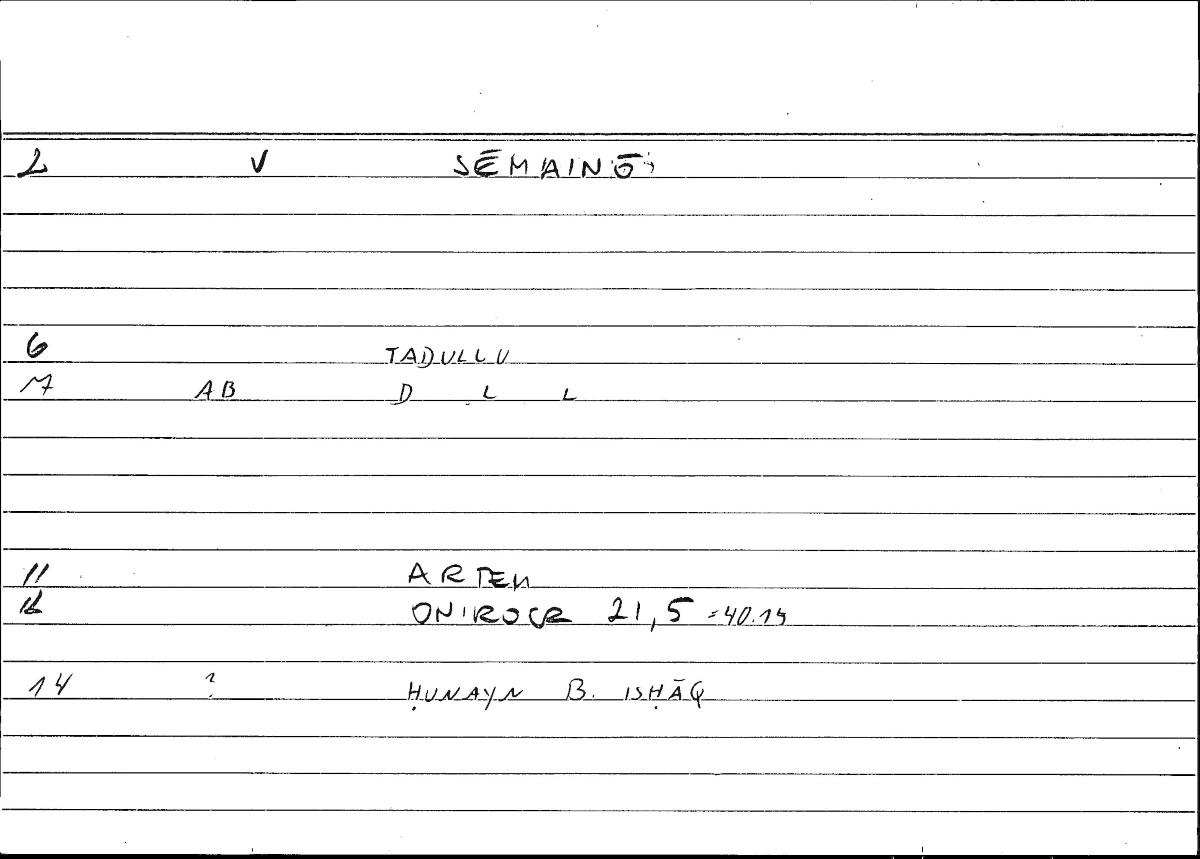 2 V SĒMAINŌ
6 TADULLU
7 AB D L L
11 ARTEM
12 ONIROCR 21,5 =40.14
14 ? ḤUNAYN B. ISḤĀQ